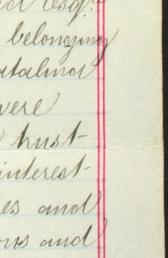 esq.
belonging
atalina
were
trust-
interest-
es and
ons and